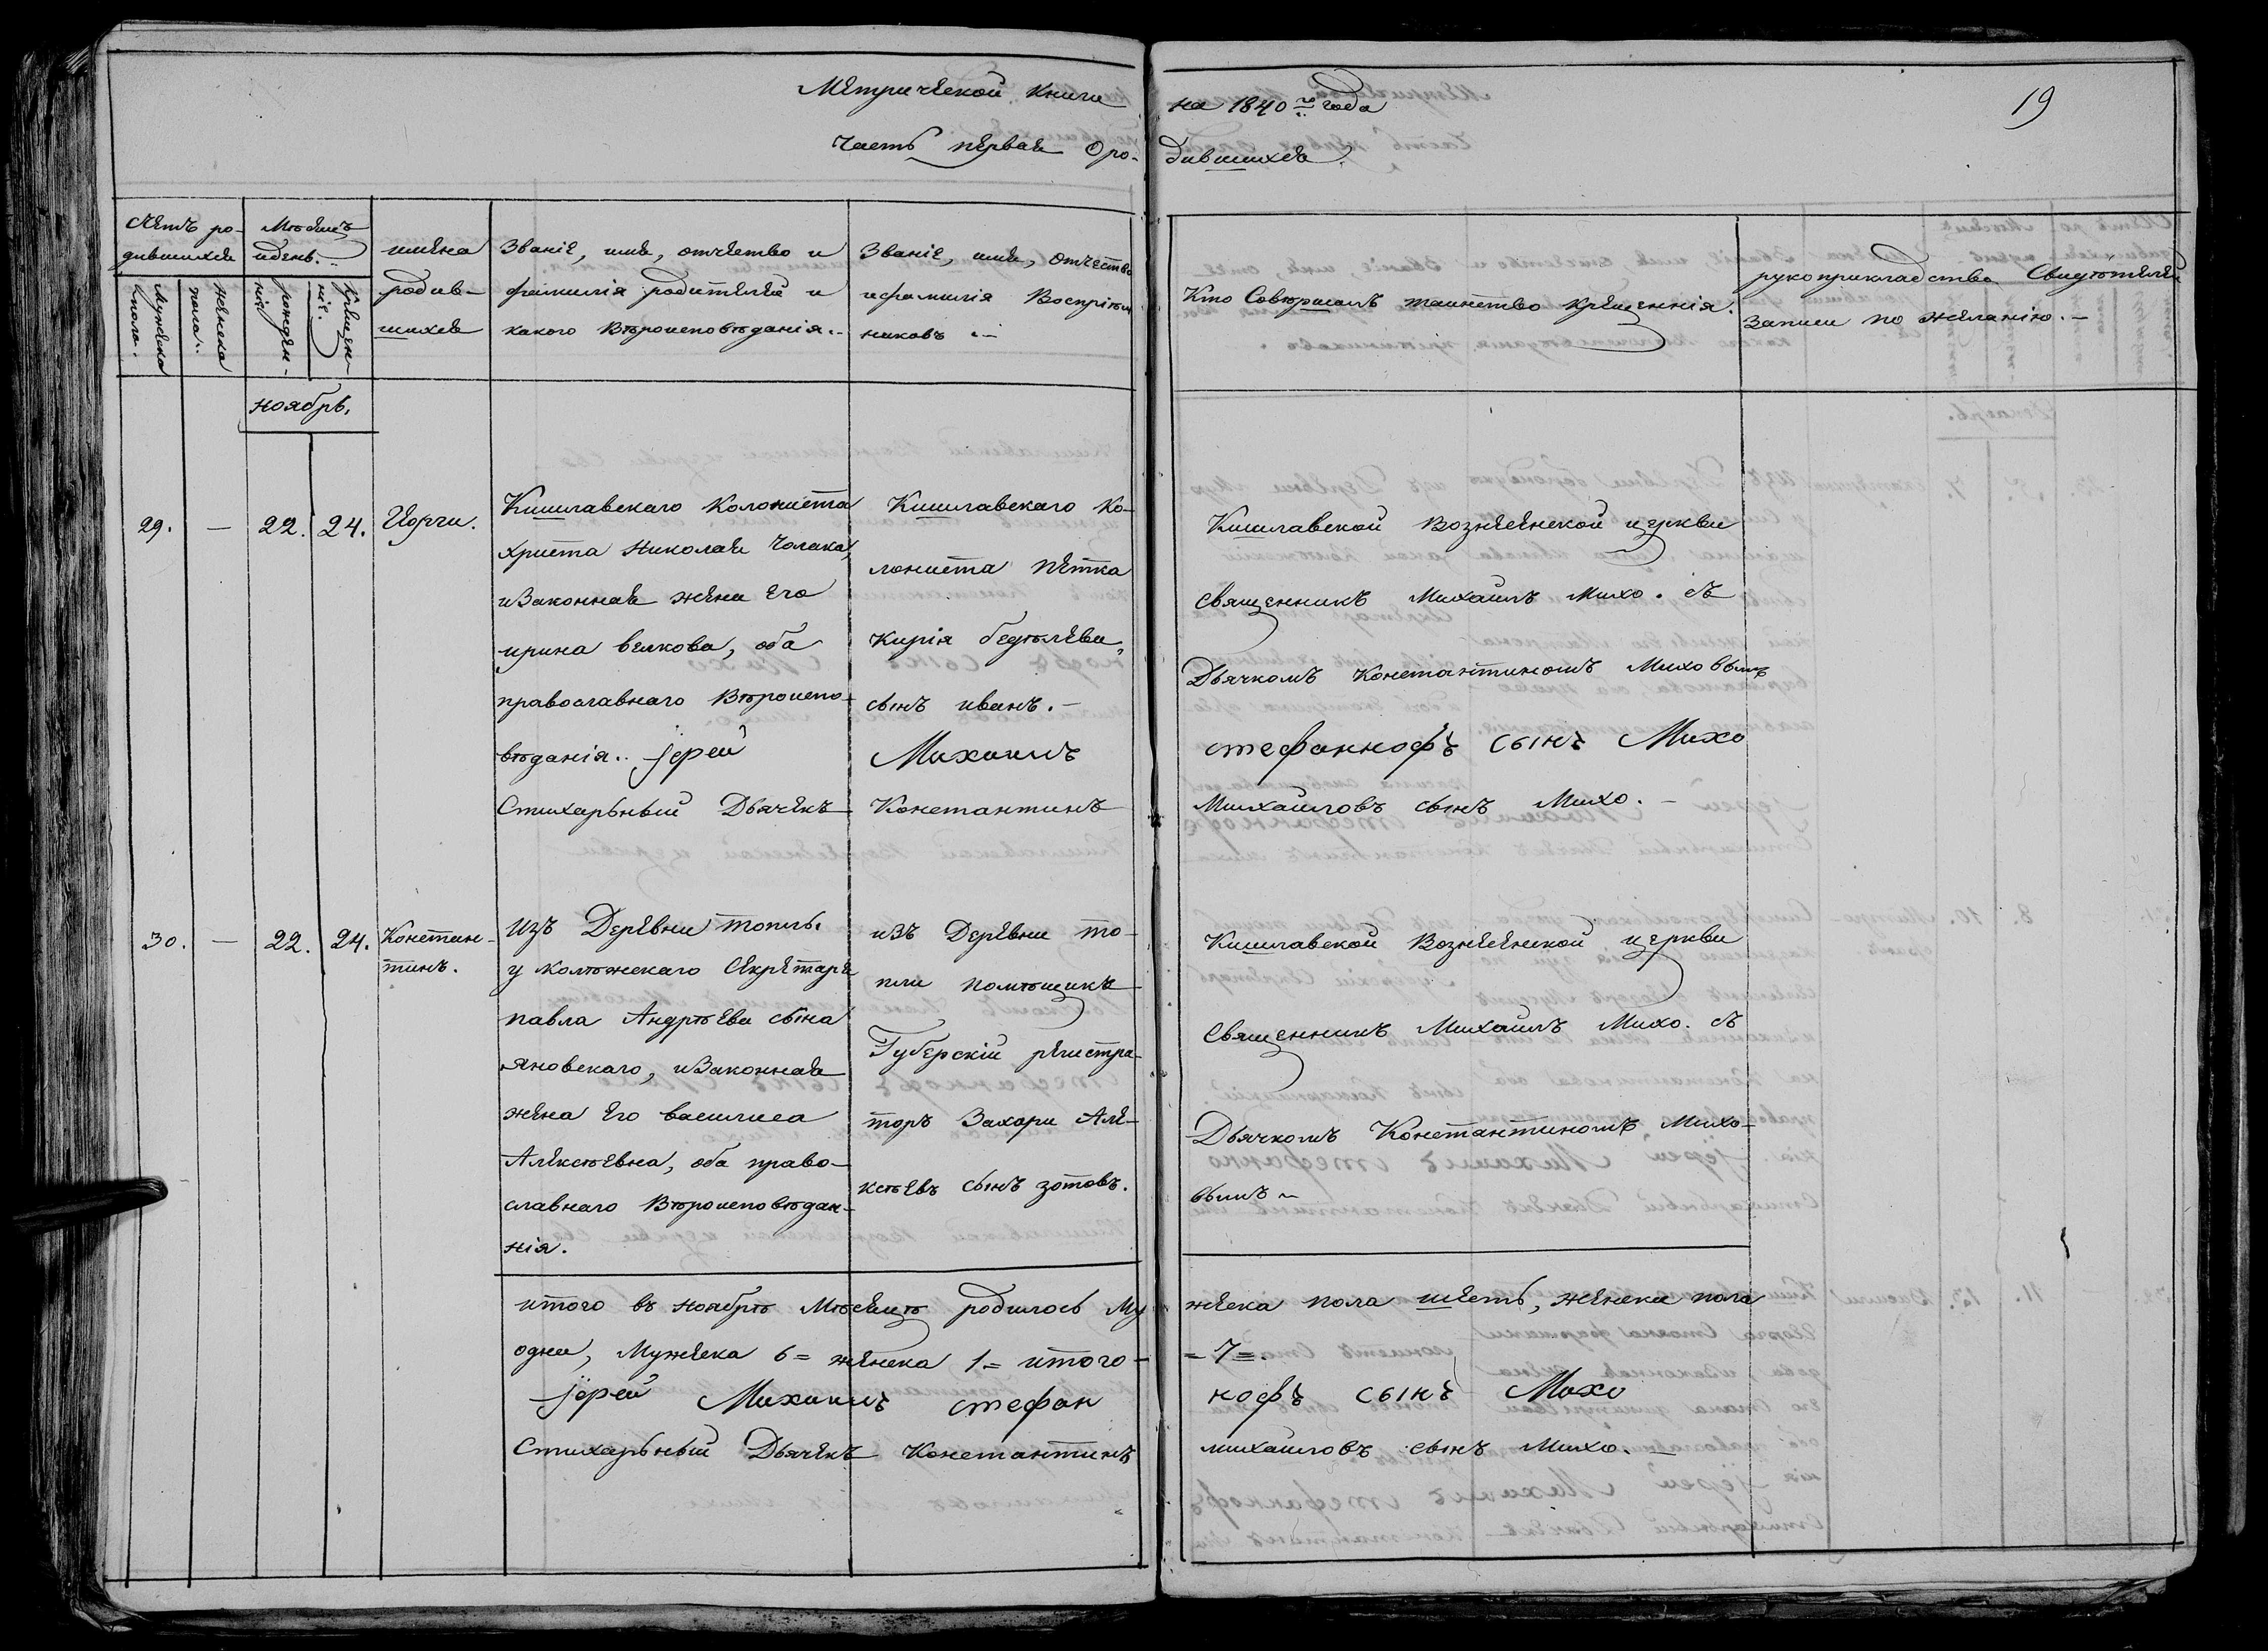 Метрической книги
на 1840го года
19
Часть первая Оро-
дившихся
Счетъ ро-
дившихся
Мѣсяцъ
и день.
имена
родив-
шихся
Званіе, имя, отчество и
фамилія родителей и
какого вѣроисповѣданія.
Званіе, имя, отчество
и фамилія воспріем
никовъ
Кто совершалъ таинство крещеннія.
рукоприкладство свидѣтелей
записи по желанію.
мужеска
пола.
женска
пола.
рожден-
нія.
крещен-
ніе.
ноябрь.
29.
—
22.
24.
Иорги.
Кишлавскаго колониста
христа николая чолака,
и законная жена его
ирина велкова, оба
православнаго вѣроиспо-
вѣданія. іерей
Стихарьный Дьячекъ
Кишлавскаго ко-
лониста петка
кирія
сынъ иванъ.
Михаилъ
Константинъ
Кишлавской Вознесенской церкви
священникъ Михаилъ Михо. съ
Дьячкомъ Константиномъ Миховымъ
стефанкофъ сынъ Михо
Михайловъ сынъ Михо.
30.
—
22.
24.
Констан-
тинъ.
изъ Деревни топлы.
у коллежскаго секретаря
павла Андрѣева сына
яновскаго, и законная
жена его василиса
Алексѣевна, оба право-
славнаго вѣроисповѣдан-
нія.
изъ Деревни то-
пли помѣщикъ
Губерскій регистра-
торъ Захари Але-
ксѣевъ сынъ зотовъ.
Кишлавской Вознесенской церкви
Священникъ Михаилъ Михо. съ
Дьячкомъ Константиномъ Михо-
вымъ
итого въ ноябрѣ мѣсяцѣ родилось му
жеска пола шесть, женска пола
одна, мужеска 6 = женска 1 = итого -
= 7 =.
іерей Михаилъ стефан
кофъ сынъ Михо
Стихарьный Дьячекъ Константинъ
михайловъ сынъ Михо.